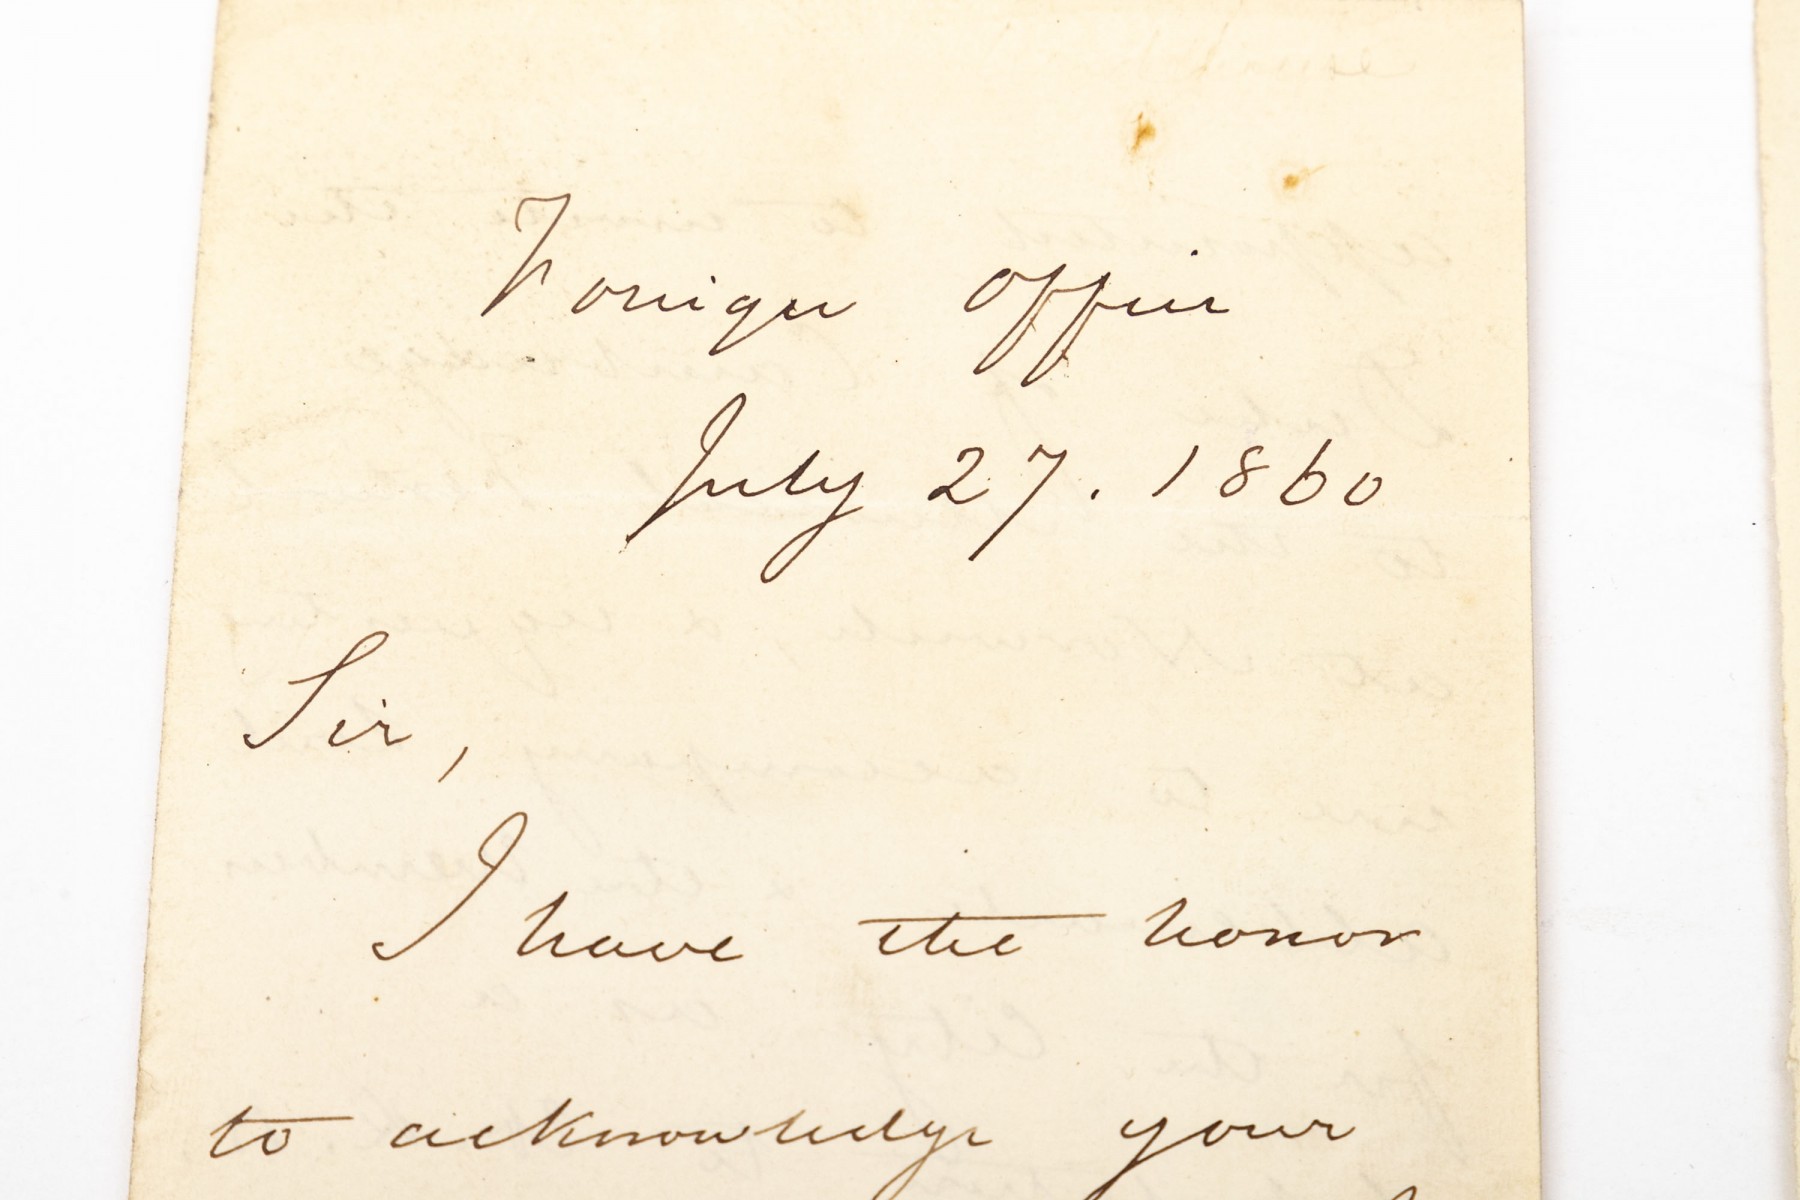 Foreign Office
July 27. 1860
Sir,
I have the honor
to acknowledge your